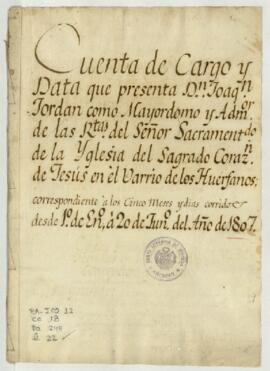 Cuenta de Cargo y
Data que presenta Dn. Joaqn.
Jordan como Mayordomo y Admor.
de las Rtas. del Señor Sacramentdo
de la Yglesia del Sagrado Corazn.
de Jesus en el Varrio de los Huerfanos;
correspondiente à los Cinco Meses y dias corridos
desde 1º. de Enº. à 20 de Junº. del Año de 1807.
22